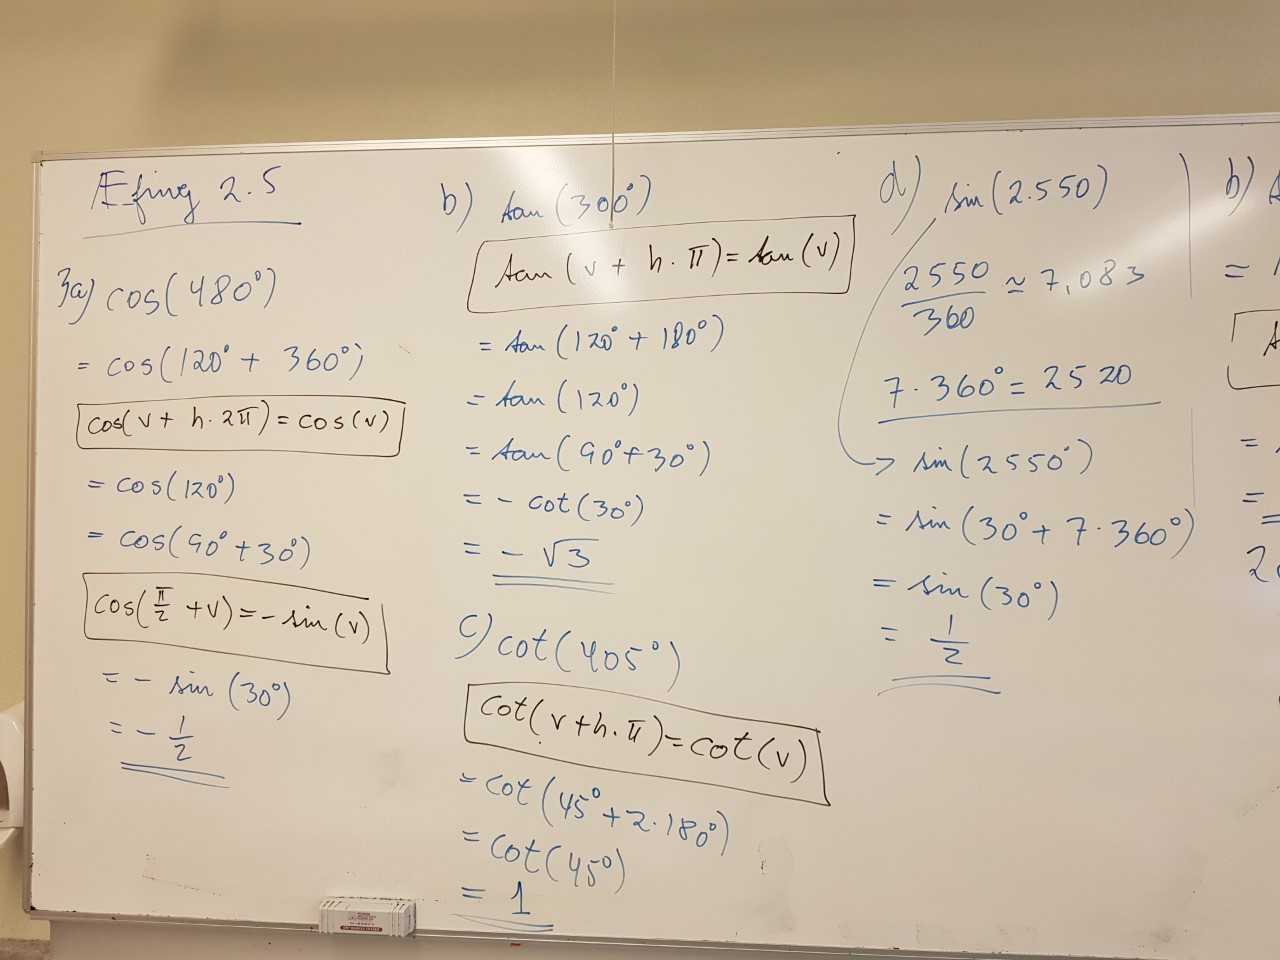 Æfing 2.5
3a) cos(480°)
= cos(120° + 360°)
cos(v + h·2π) = cos(v)
= cos(120°)
= cos(90° + 30°)
cos(π/2 + v) = -sin(v)
= - sin(30°)
= - 1/2
b) tan(300°)
tan(v + h·π) = tan(v)
= tan(120° + 180°)
= tan(120°)
= tan(90° + 30°)
= - cot(30°)
= - √3
c) cot(405°)
cot(v + h·π) = cot(v)
= cot(45° + 2·180°)
= cot(45°)
= 1
d) sin(2.550)
2550/360 ≃ 7,083
7·360° = 2520
→ sin(2550°)
= sin(30° + 7·360°)
= sin(30°)
= 1/2
b)
=
=
=